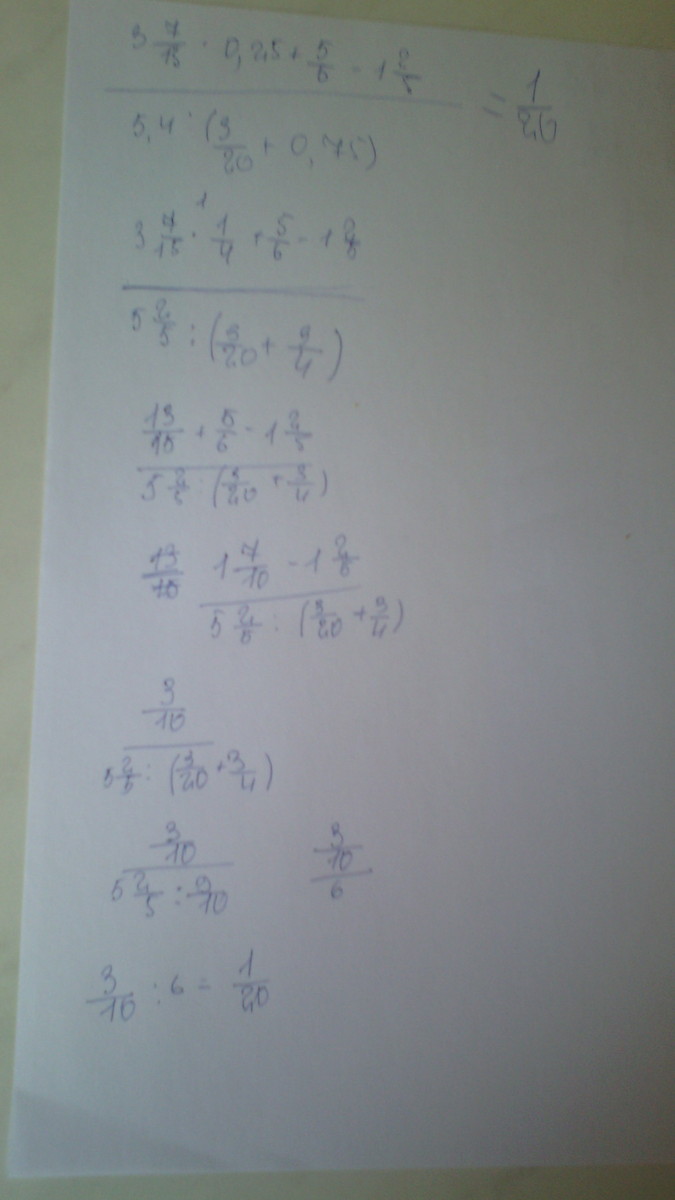 3 7/15 · 0,25 + 5/6 - 1 2/5
= 1/20
5,4 : (3/20 + 0,75)
1
3 7/15 · 1/4 + 5/6 - 1 2/5
5 2/5 : (3/20 + 3/4)
13/15 + 5/6 - 1 2/5
5 2/5 : (3/20 + 3/4)
13/15 1 7/10 - 1 2/5
5 2/5 : (3/20 + 3/4)
3/10
5 2/5 : (3/20 + 3/4)
3/10 3/10
5 2/5 : 9/10 6
3/10 : 6 = 1/20